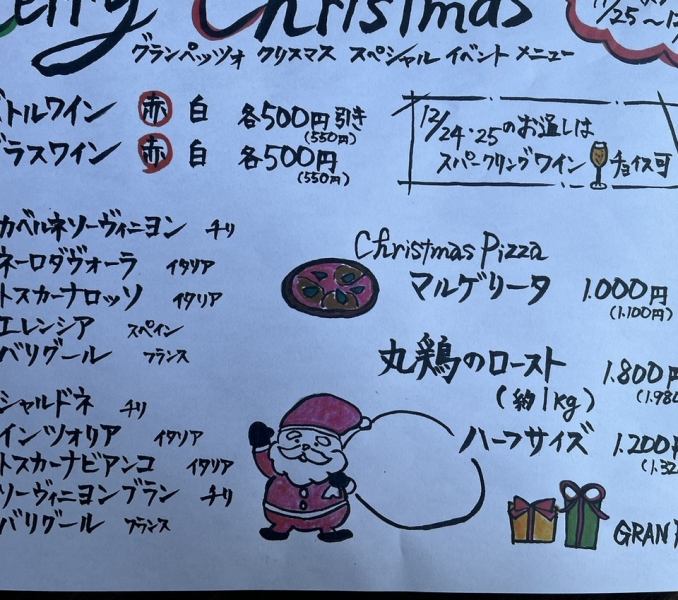 erry Christmas
/25～1
グランペッツォ クリスマス スペシャル イベント メニュー
トルワイン 赤 白 各500円引き
(550円)
ラスワイン 赤 白 各500円
(550円)
12/24・25のお通しは
スパークリングワイン チョイス可
カベルネソーヴィニヨン チリ
ネーロダヴォーラ イタリア
トスカーナロッソ イタリア
エレンシア スペイン
バリグール フランス
Christmas Pizza
マルゲリータ 1.000円
(1.100円)
丸鶏のロースト 1.800円
(約1kg) (1.980
ハーフサイズ 1.200円
(1.32
シャルドネ チリ
インツォリア イタリア
トスカーナビアンコ イタリア
ソーヴィニヨンブラン チリ
バリグール フランス
GRAN